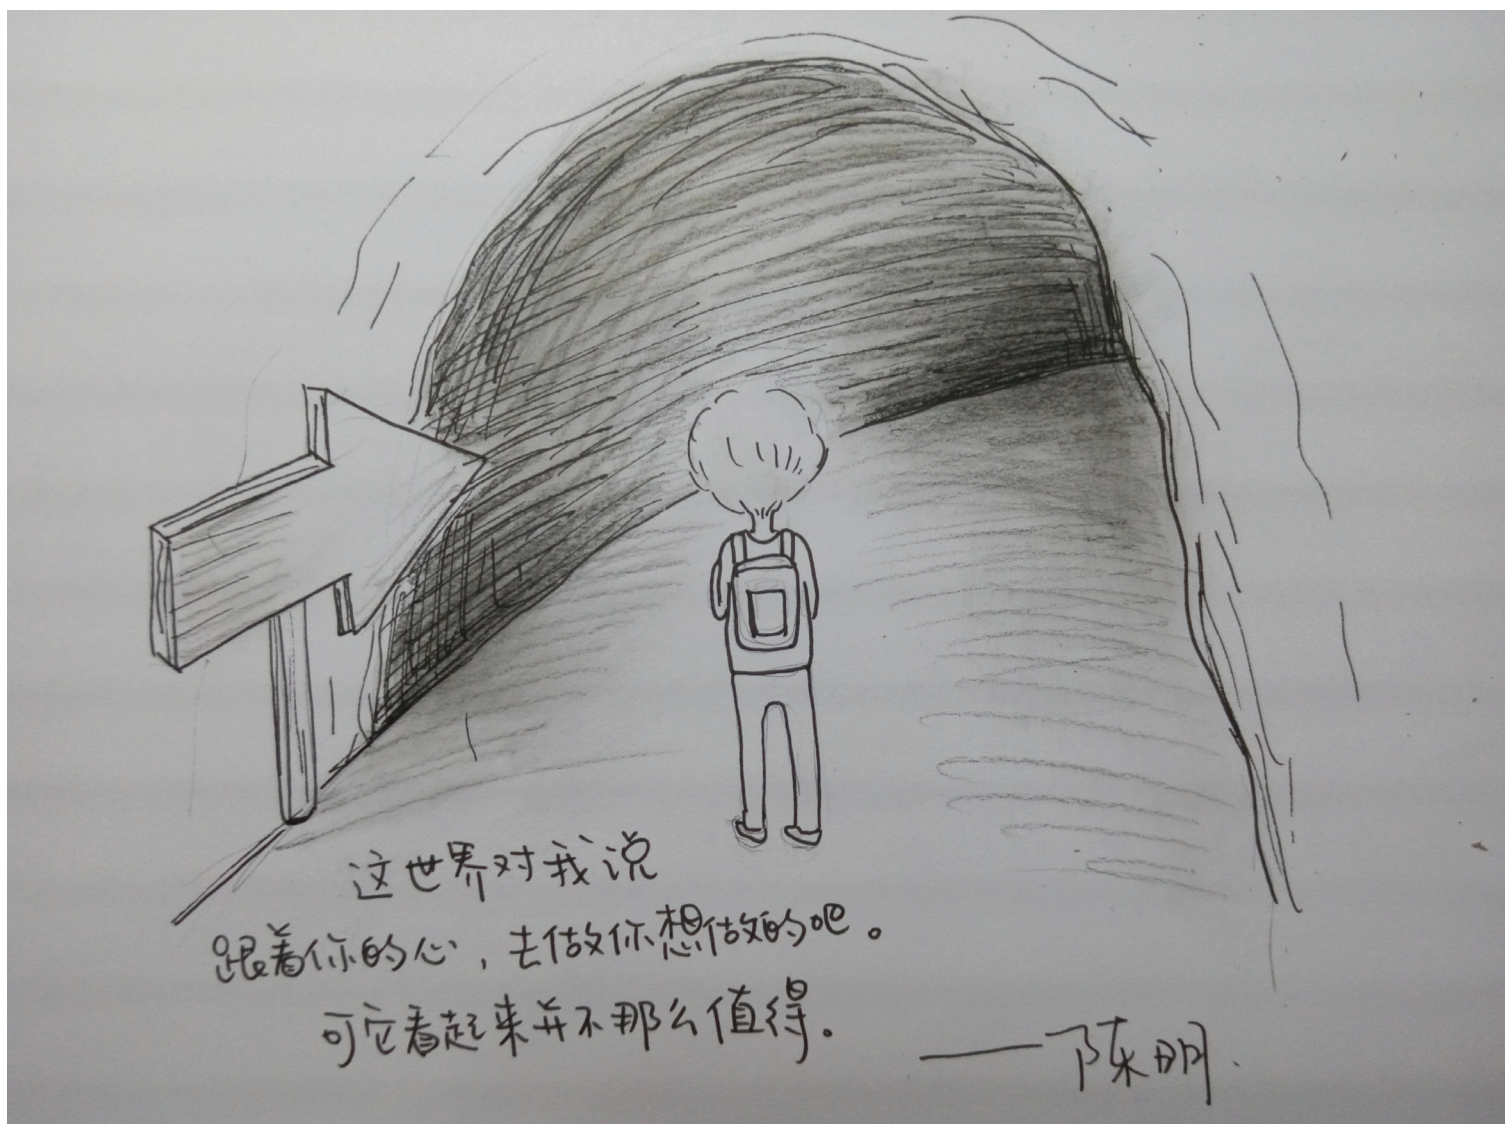 这世界对我说
跟着你的心，去做你想做的吧。
可它看起来并不那么值得。
——陈明.